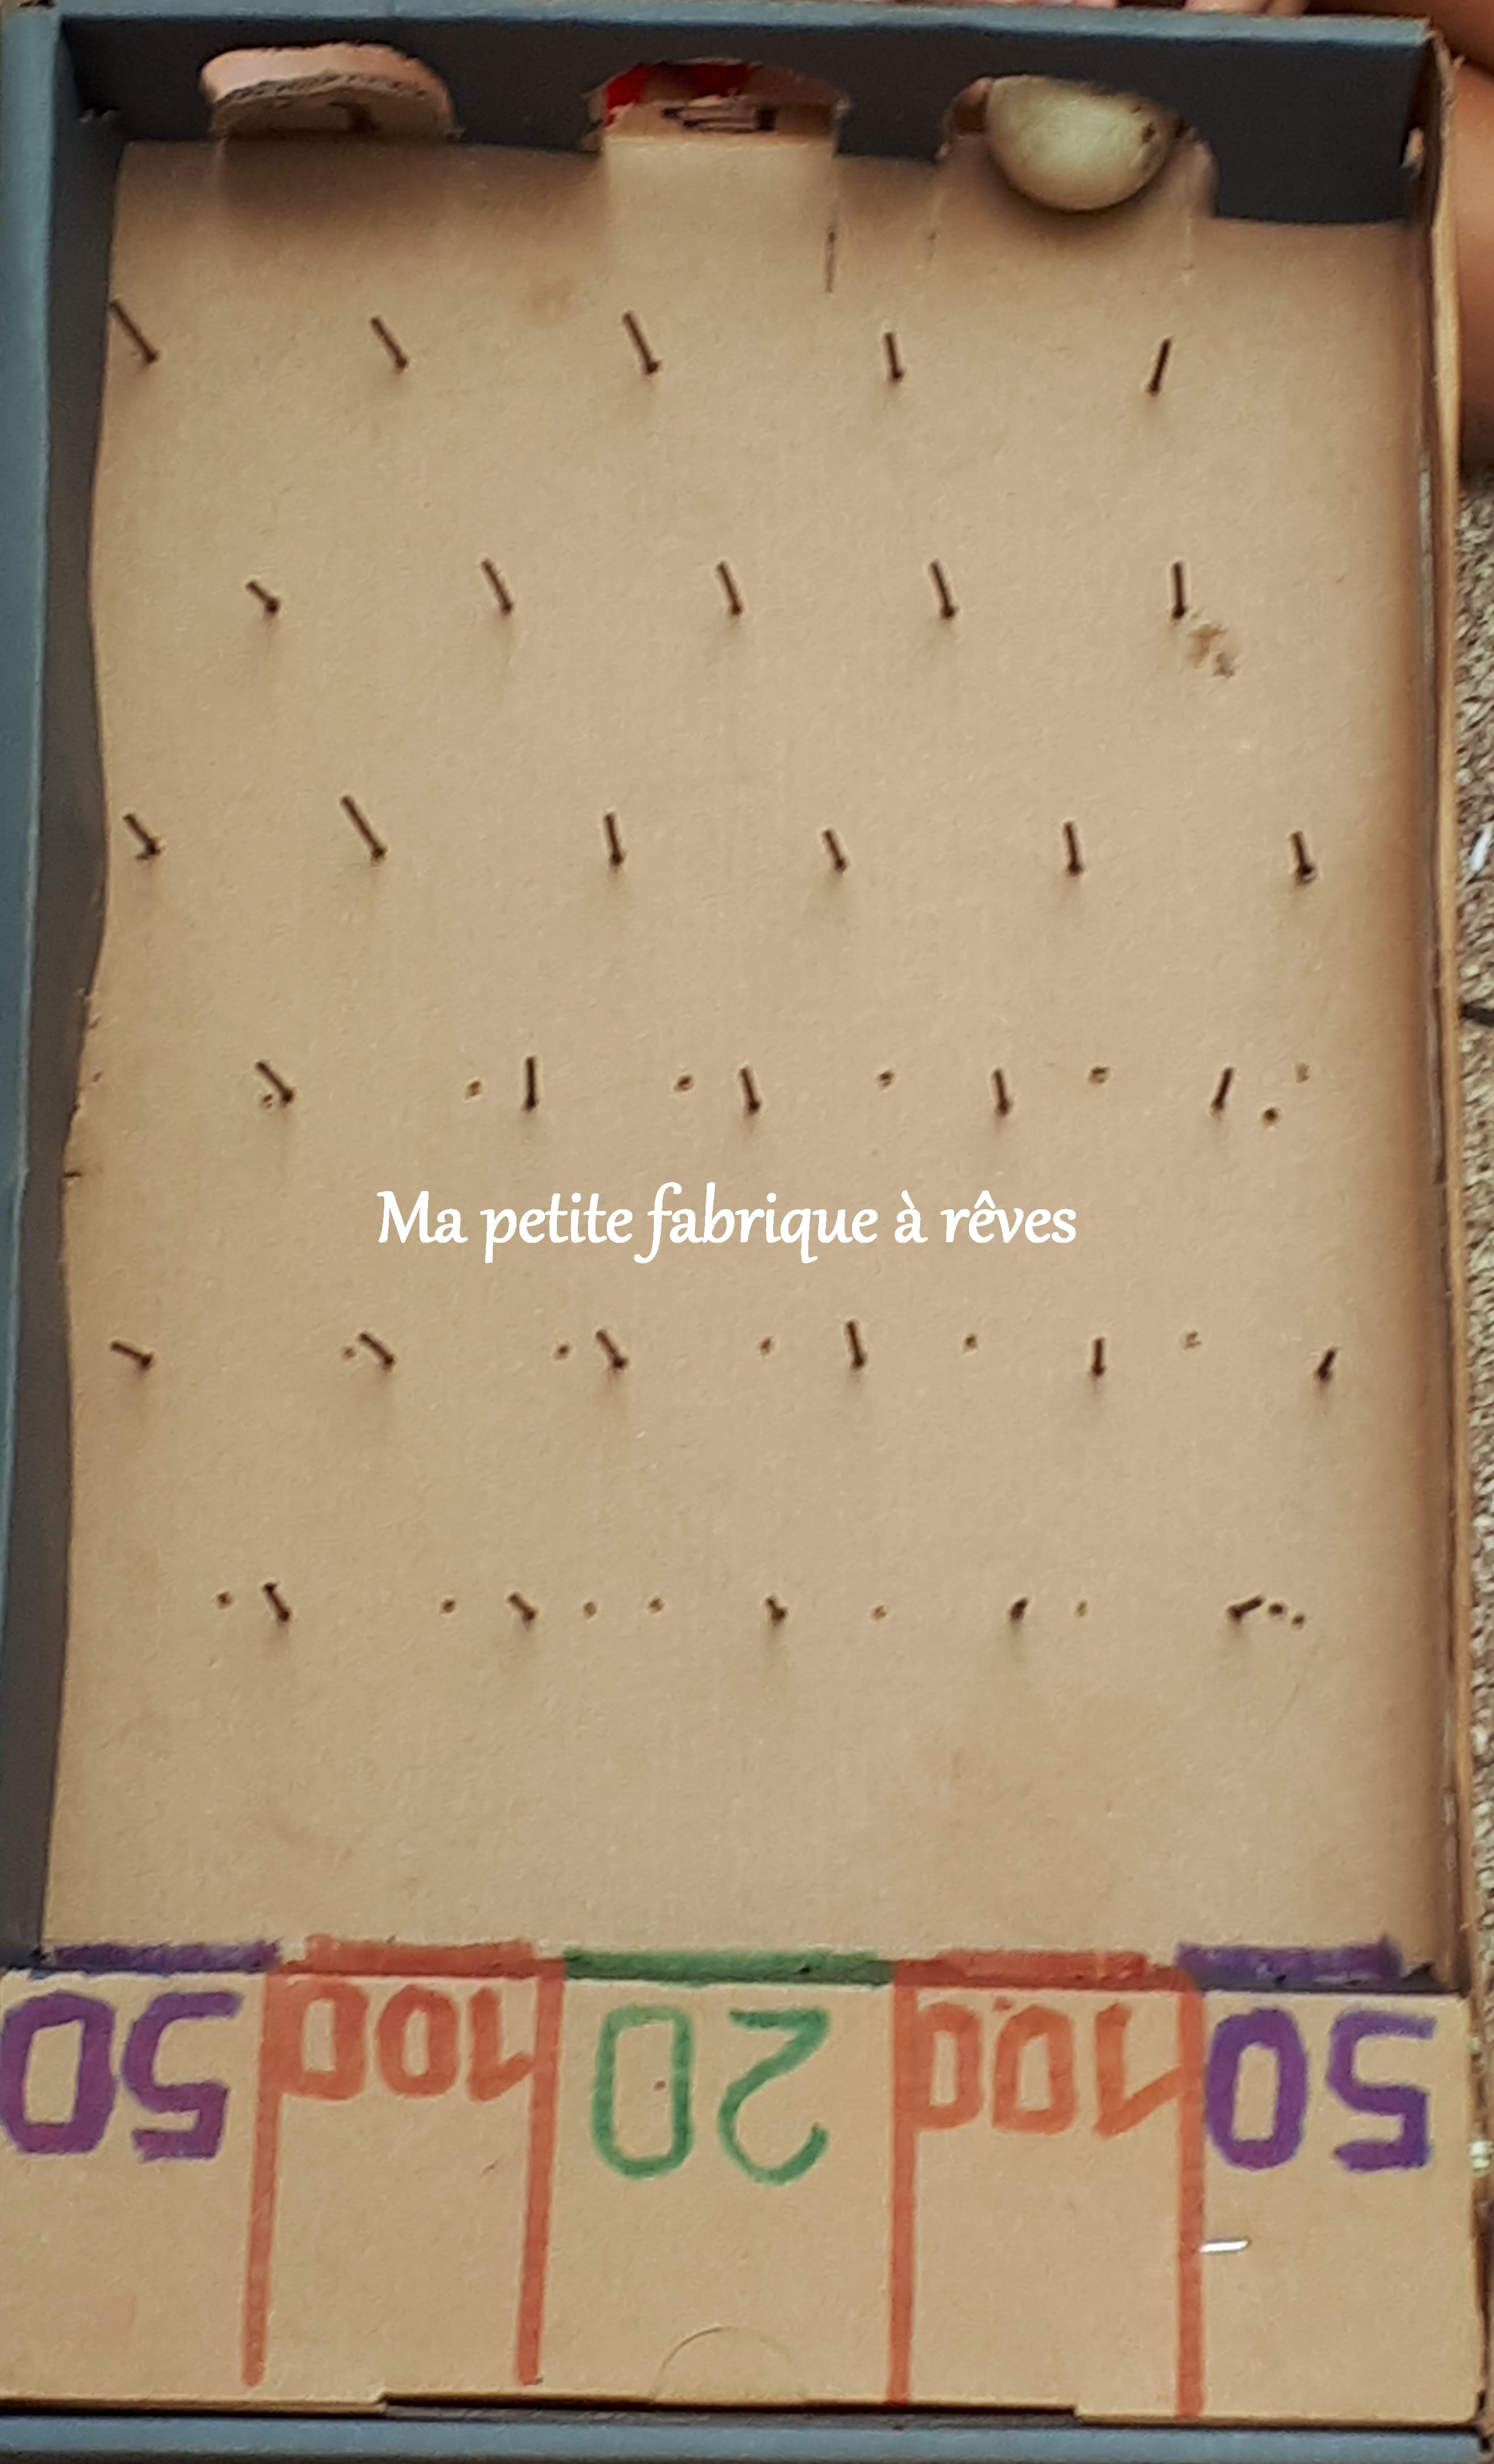 Ma petite fabrique à rêves
50 100 20 100 50